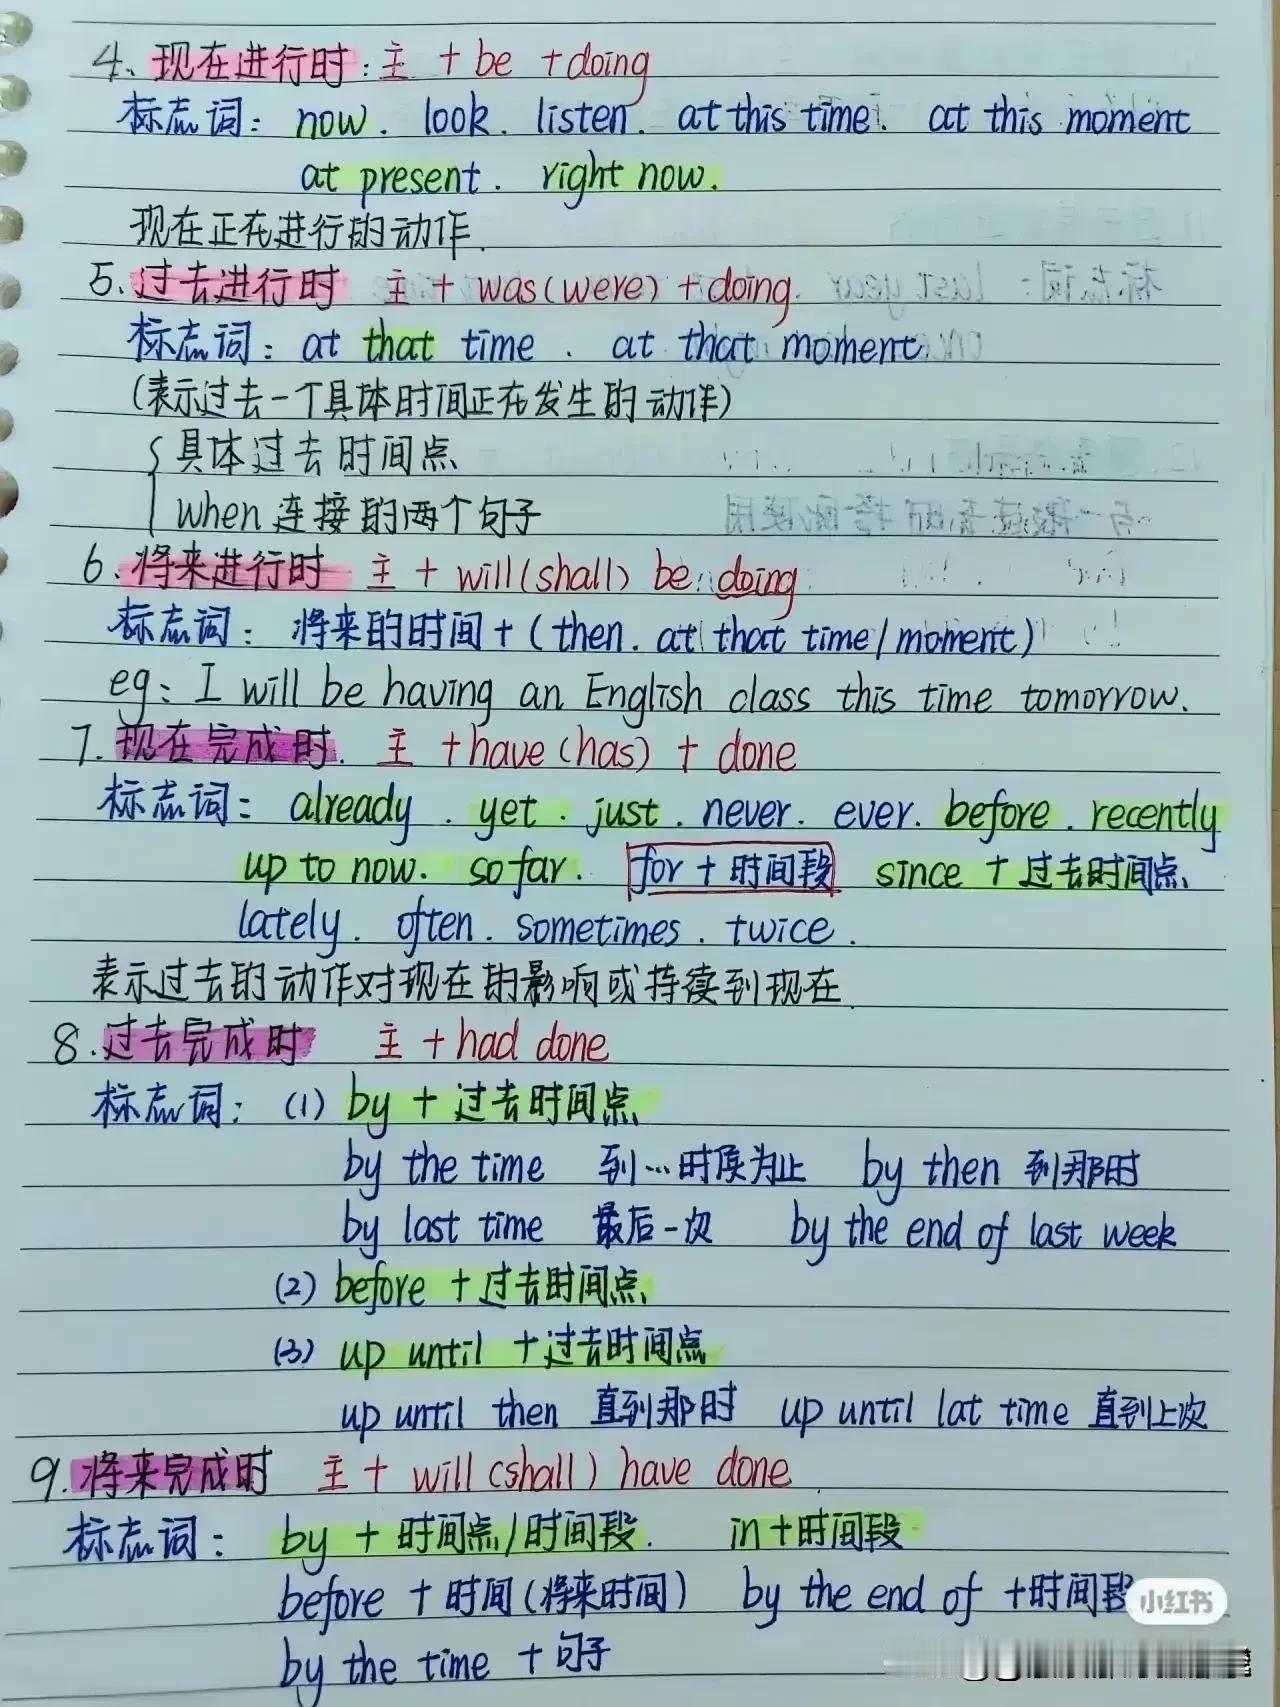 4、现在进行时：主 + be + doing
标志词： now. look. listen. at this time. at this moment
at present. right now.
现在正在进行的动作.
5.过去进行时 主 + was(were) + doing.
标志词：at that time . at that moment
(表示过去一个具体时间正在发生的动作)
具体过去时间点
when 连接的两个句子
6.将来进行时 主 + will(shall) be doing
标志词： 将来的时间 + (then. at that time/moment)
eg: I will be having an English class this time tomorrow.
7.现在完成时. 主 + have (has) + done
标志词： already . yet . just . never. ever. before . recently
up to now. so far. for + 时间段 since + 过去时间点、
lately. often. sometimes. twice.
表示过去的动作对现在的影响或持续到现在.
8.过去完成时 主 + had done
标志词： (1) by + 过去时间点
by the time 到…时候为止 by then 到那时
by last time 最后一次 by the end of last week
(2) before + 过去时间点
(3) up until + 过去时间点
up until then 直到那时 up until lat time 直到上次
9.将来完成时 主 + will (shall) have done
标志词： by + 时间点/时间段. in + 时间段
before + 时间(将来时间) by the end of + 时间段
by the time + 句子
小红书